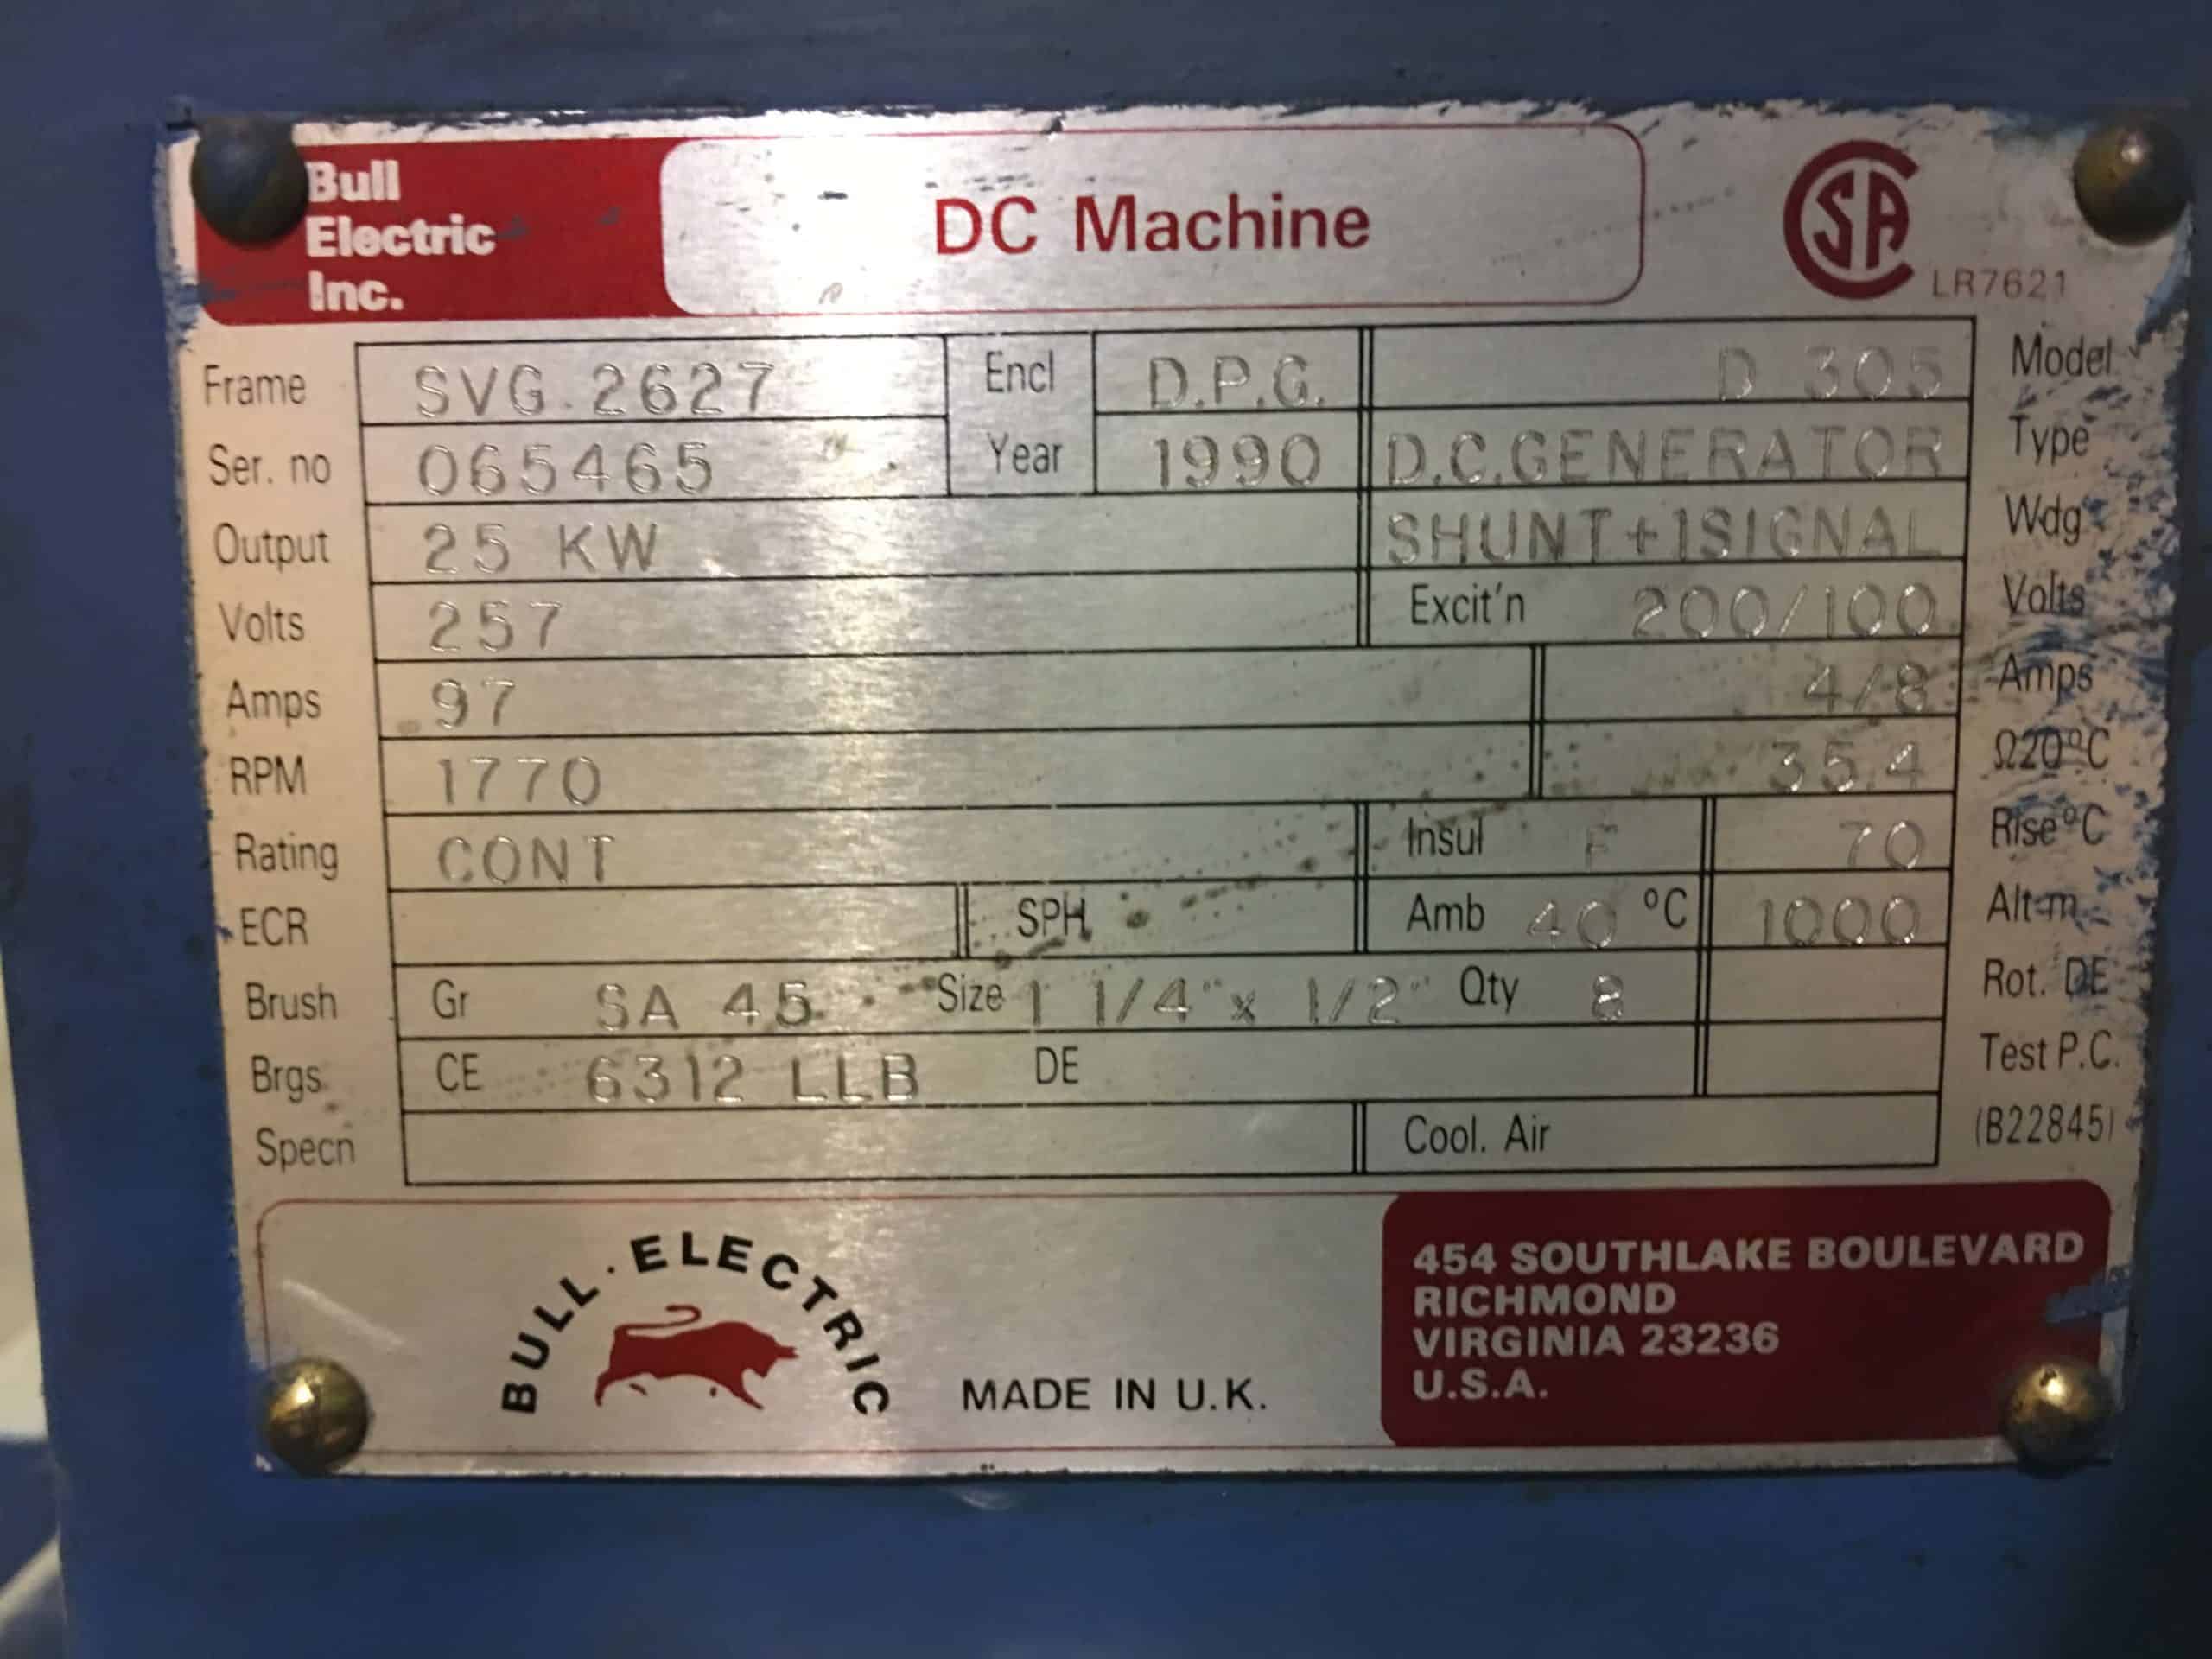 Bull
Electric
Inc.
DC Machine
CSA
LR7621
Frame SVG.2627 Encl D.P.G. D 305 Model
Ser. no 065465 Year 1990 D.C.GENERATOR Type
Output 25 KW SHUNT+1SIGNAL Wdg
Volts 257 Excit'n 200/100 Volts
Amps 97 4/8 Amps
RPM 1770 35.4 Ω20°C
Rating CONT Insul F 70 Rise°C
ECR SPH Amb 40 °C 1000 Alt-m
Brush Gr SA 45 Size 1 1/4"x 1/2" Qty 8 Rot. DE
Brgs CE 6312 LLB DE Test P.C.
Specn Cool. Air (B22845)
BULL·ELECTRIC
MADE IN U.K.
454 SOUTHLAKE BOULEVARD
RICHMOND
VIRGINIA 23236
U.S.A.